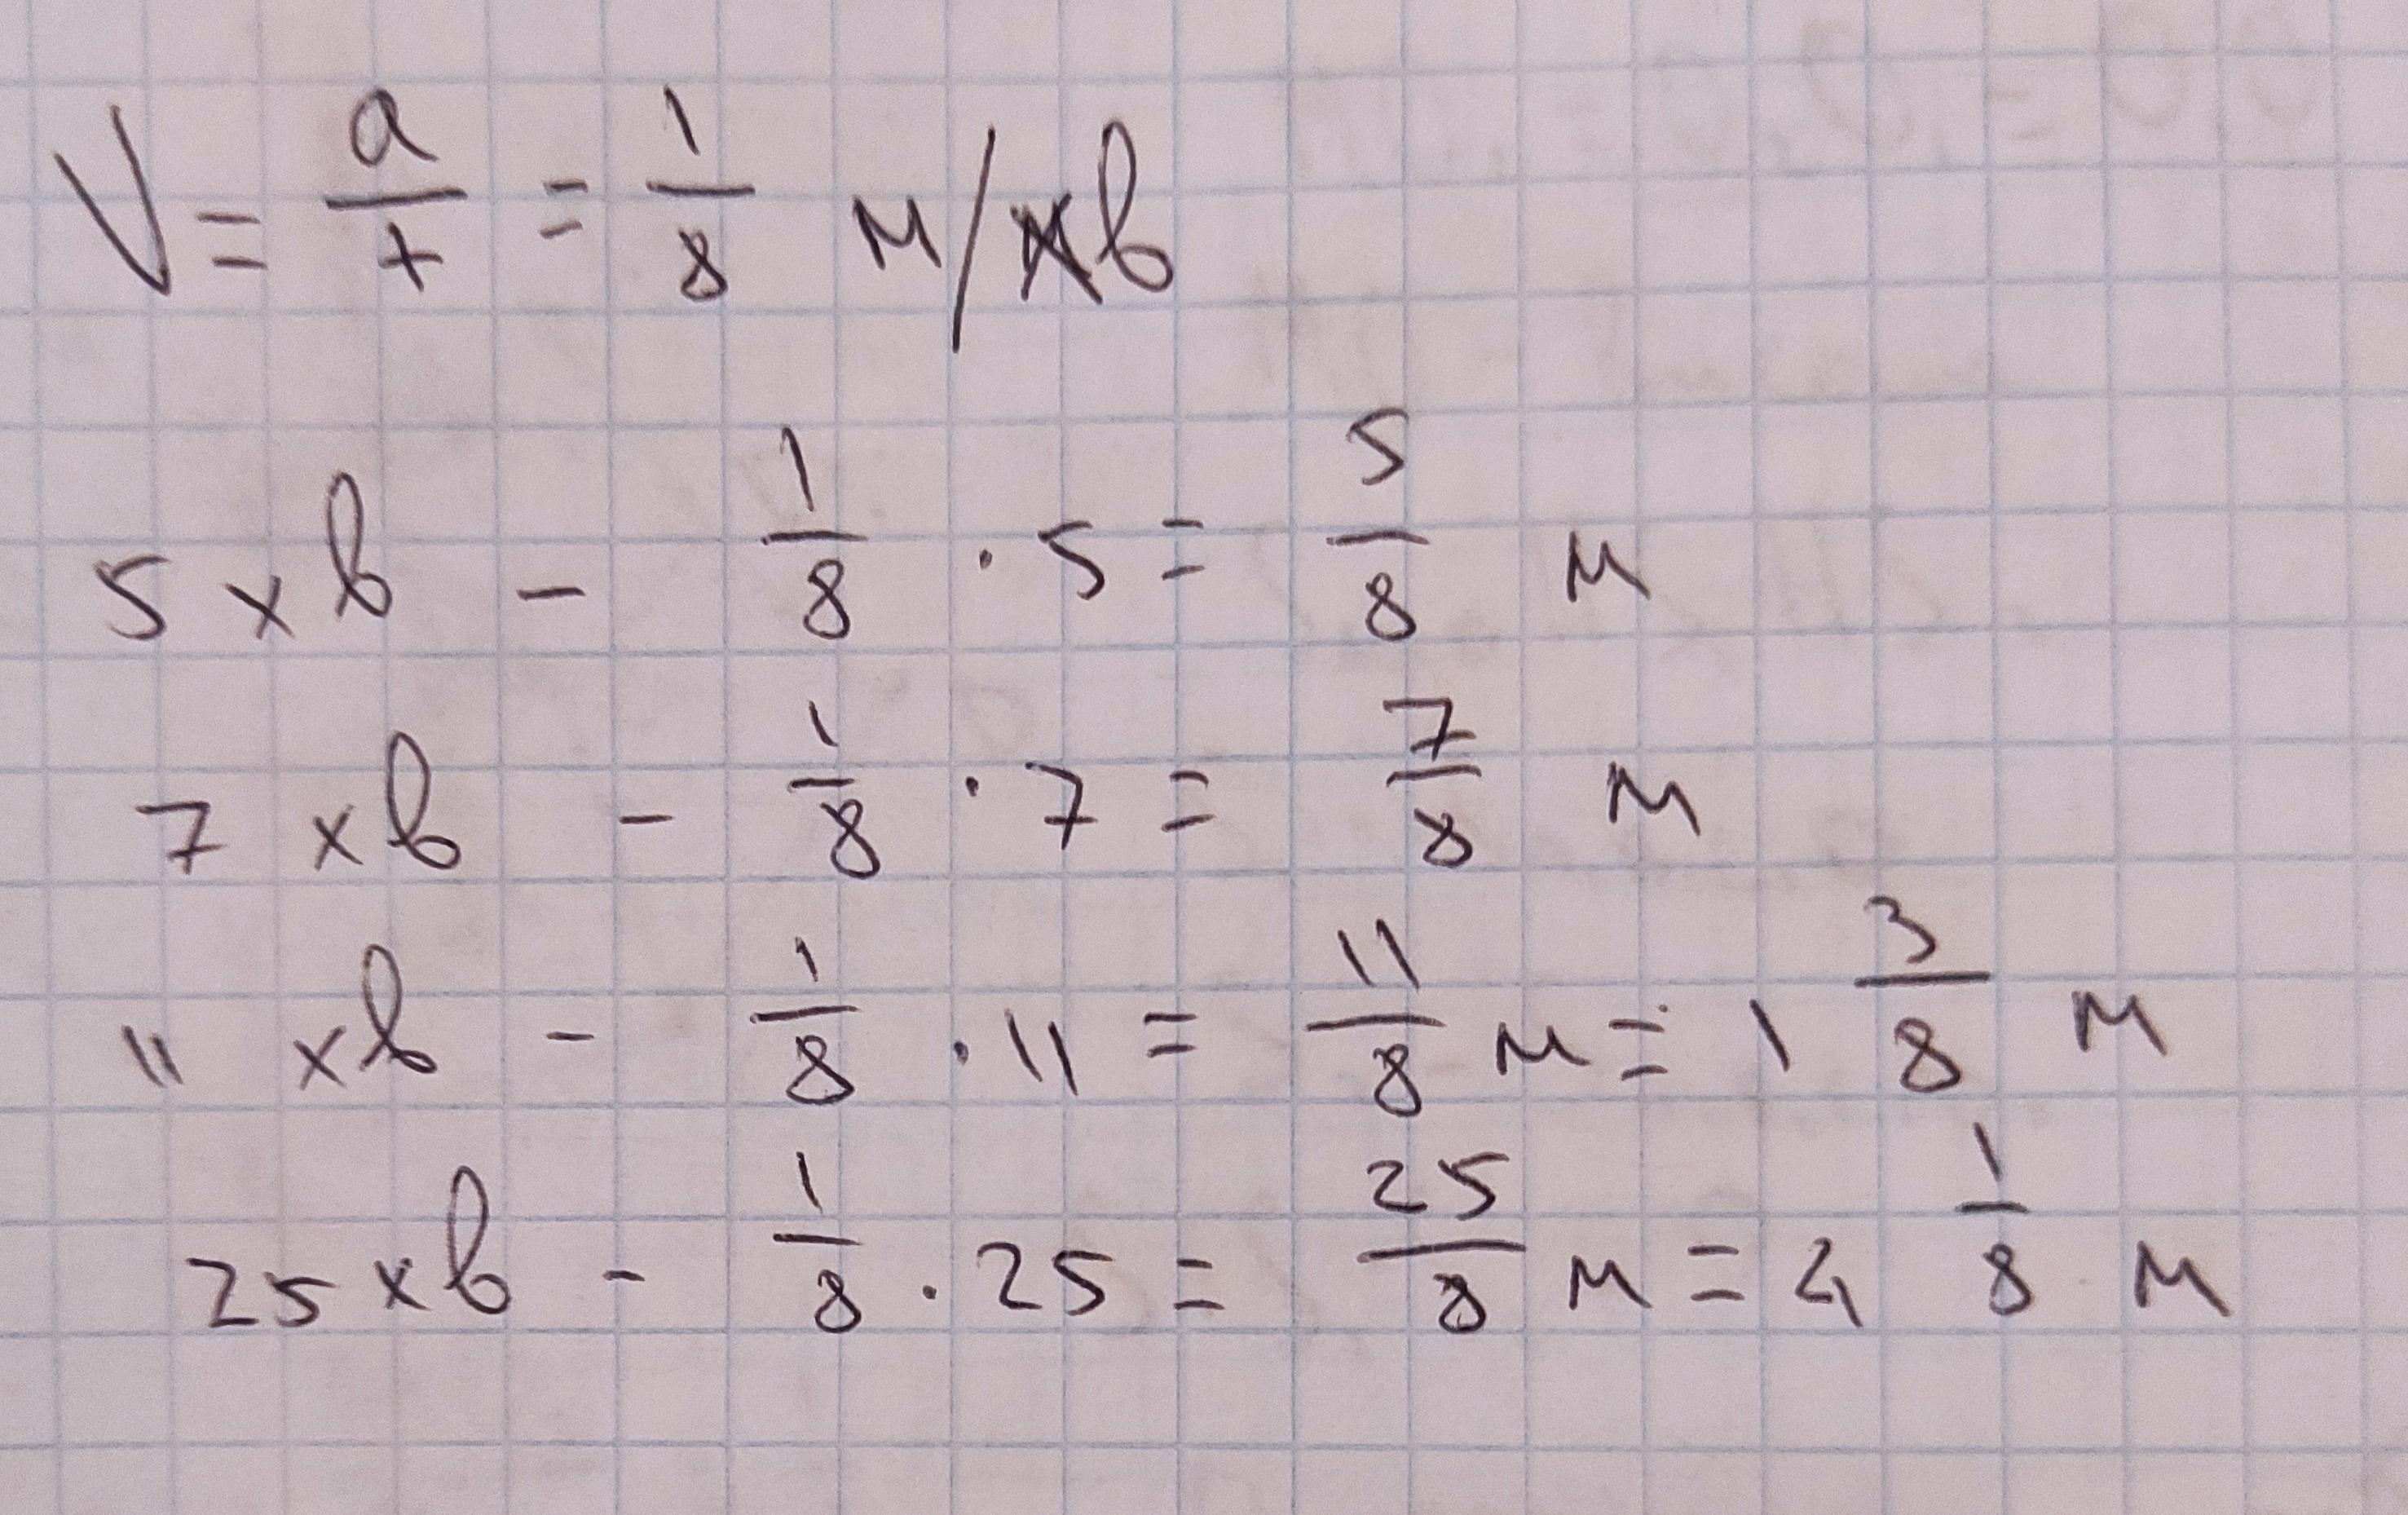 V = a/t = 1/8 м/хв
5 хв - 1/8 · 5 = 5/8 м
7 хв - 1/8 · 7 = 7/8 м
11 хв - 1/8 · 11 = 11/8 м = 1 3/8 м
25 хв - 1/8 · 25 = 25/8 м = 4 1/8 м